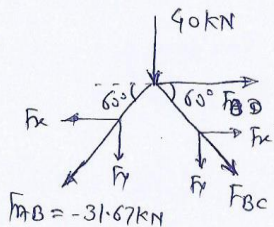 40KN
60° 60° FBD
Fx Fx
Fy Fy
FAB = -31.67KN FBC